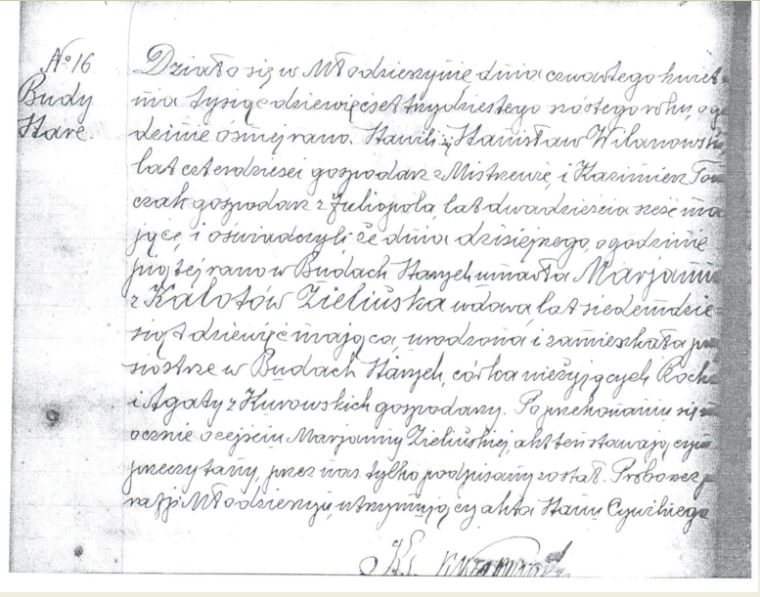 No 16
Budy
Stare.
Działo się w Młodzieszynie dnia czwartego kwiet-
nia tysiąc dziewięćset trzydziestego szóstego roku, o go
dzinie ósmej rano. Stawili się Stanisław Wilanowski
lat czterdzieści gospodarz z Mistrzewic i Kazimierz Tom
czak gospodarz z Juliopola lat dwadzieścia sześć ma
jący i oświadczyli że dnia dzisiejszego, o godzinie
piątej rano w Budach Starych umarła Marjanna
z Kalotów Zielińska wdowa lat siedemdzie-
siąt dziewięć mająca, urodzona i zamieszkała przy
siostrze w Budach Starych, córka nieżyjących Rocha
i Agaty z Kurowskich gospodarzy. Po przekonaniu się na
ocznie o zejściu Marjanny Zielińskiej, akt ten stawającym
przeczytany, przez nas tylko podpisany został. Proboszcz pa
rafji Młodzieszyn, utrzymujący akta Stanu Cywilnego
Ks.